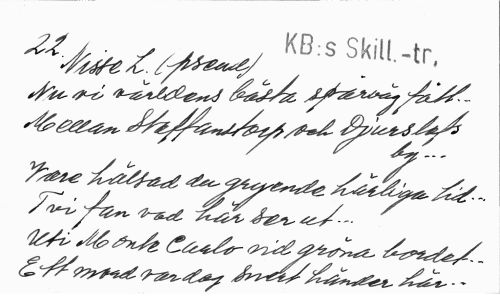 22.
KB:s Skill.-tr.
Nisse L. (pseud)
Nu vi världens bästa spårväg fått...
Mellan Staffanstorp och Djurslöfs
by...
Vare hälsad du gryende härliga tid...
Tvi fan vad här ser ut...
Uti Monte Carlo vid gröna bordet...
Ett mord vardag snart händer här...